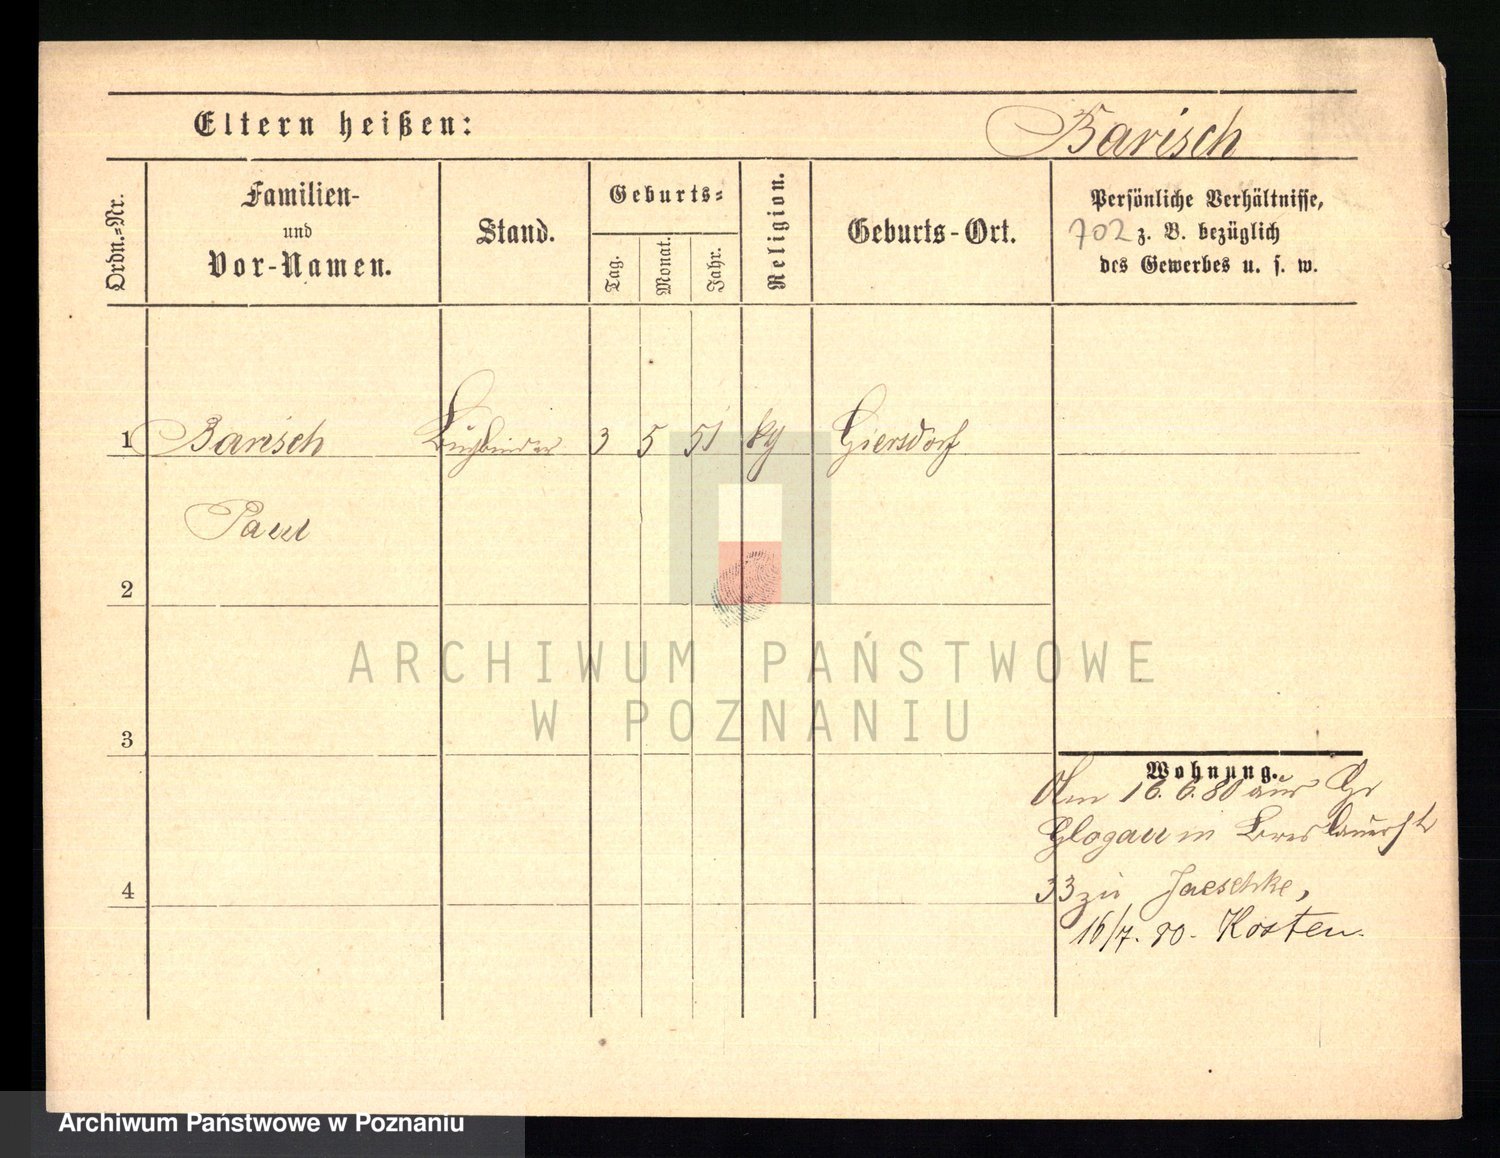 Eltern heißen:
Barisch
Ordn.-Nr.
Familien-
und
Vor-Namen.
Stand.
Geburts-
Tag.
Monat.
Jahr.
Religion.
Geburts-Ort.
Persönliche Verhältnisse,
702 z. B. bezüglich
des Gewerbes u. s. w.
1 Barisch Buchbinder 3 5 51 Giersdorf
Paul
2
3
4
Wohnung.
Am 16.6.80 aus Gr
Glogau in Breslauerst
33 zu Jaeschke,
16/7. 80. Kosten.
ARCHIWUM PAŃSTWOWE
W POZNANIU
Archiwum Państwowe w Poznaniu